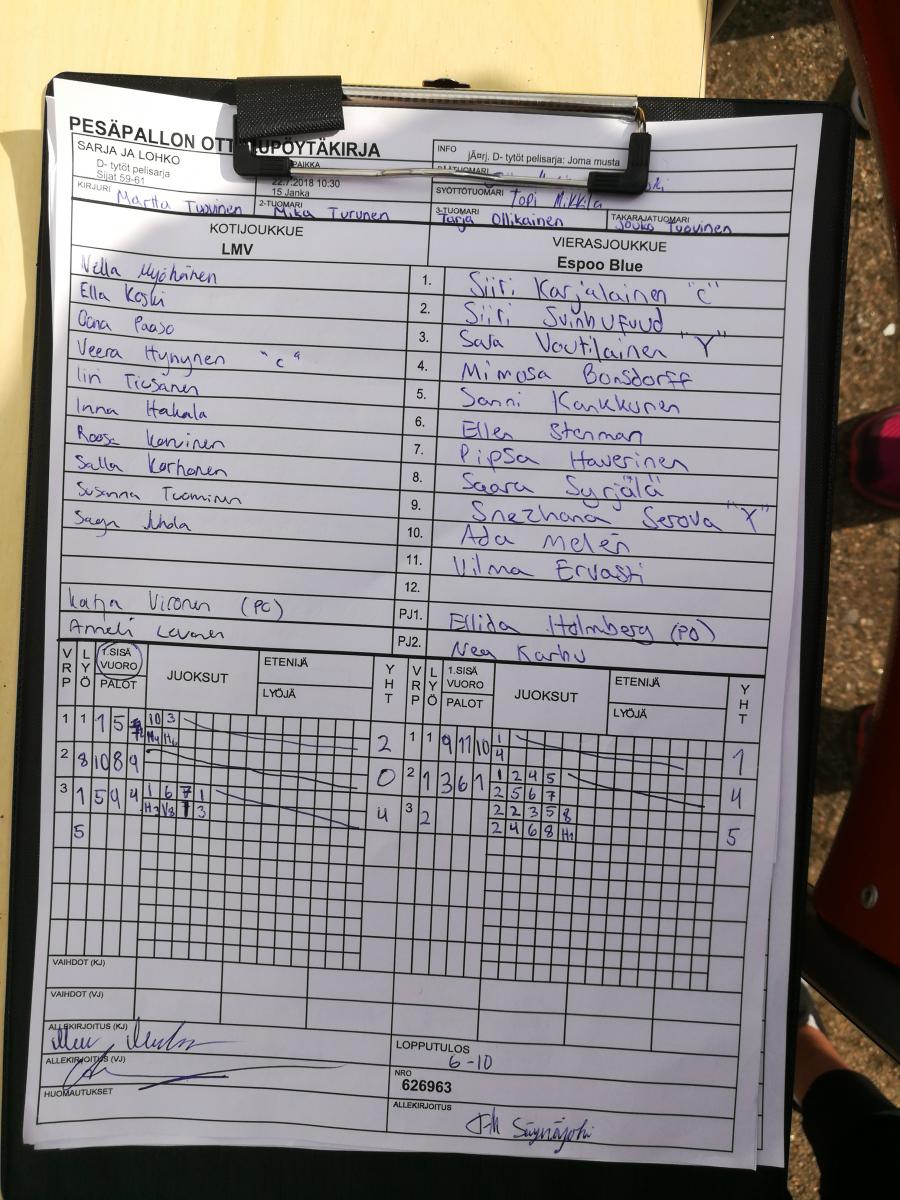 PESÄPALLON OTT UPÖYTÄKIRJA
SARJA JA LOHKO
D- tytöt pelisarja
Sijat 59-61
PAIKKA
22.7.2018 10:30
15 Janka
INFO
jÄ¤rj. D- tytöt pelisarja: Joma musta
SYÖTTÖTUOMARI Topi Mikkila
KIRJURI Martta Tuovinen
2-TUOMARI Mika Turunen
3-TUOMARI Tarja Ollikainen
TAKARAJATUOMARI Jouko Tuovinen
KOTIJOUKKUE
LMV
VIERASJOUKKUE
Espoo Blue
Nella Myöhänen 1. Siiri Karjalainen "C"
Ella Koski 2. Siiri Svinhufvud
Oona Paaso 3. Sara Voutilainen "Y"
Veera Hynynen "C" 4. Mimosa Bonsdorff
Iiri Tiesanen 5. Sanni Kankkunen
Inna Hakala 6. Ellen Stenman
Roosa Korvinen 7. Pipsa Haverinen
Salla Korhonen 8. Saara Syrjälä
Susanna Tuominen 9. Snezhana Serova "Y"
Saga Juhola 10. Ada Melén
11. Vilma Ervasti
12.
Katja Vironen (PC) PJ1. Ellida Holmberg (PO)
Anneli PJ2. Nea Karhu
VRP LYÖ 1.SISÄ VUORO PALOT JUOKSUT ETENIJÄ LYÖJÄ YHT VRP LYÖ 1.SISÄ VUORO PALOT JUOKSUT ETENIJÄ LYÖJÄ YHT
1 1 1 5 10 3 2 1 1 9 11 10 1 1
4
2 8 10 8 9 0 2 1 3 6 1 1 2 4 5 4
2 5 6 7
3 1 5 9 4 1 6 7 1 4 3 2 2 2 3 5 8 5
H3 V8 1 3 2 4 6 8 H1
5
VAIHDOT (KJ)
VAIHDOT (VJ)
ALLEKIRJOITUS (KJ)
ALLEKIRJOITUS (VJ)
HUOMAUTUKSET
LOPPUTULOS
6-10
NRO
626963
ALLEKIRJOITUS
J-M Säynäjoki